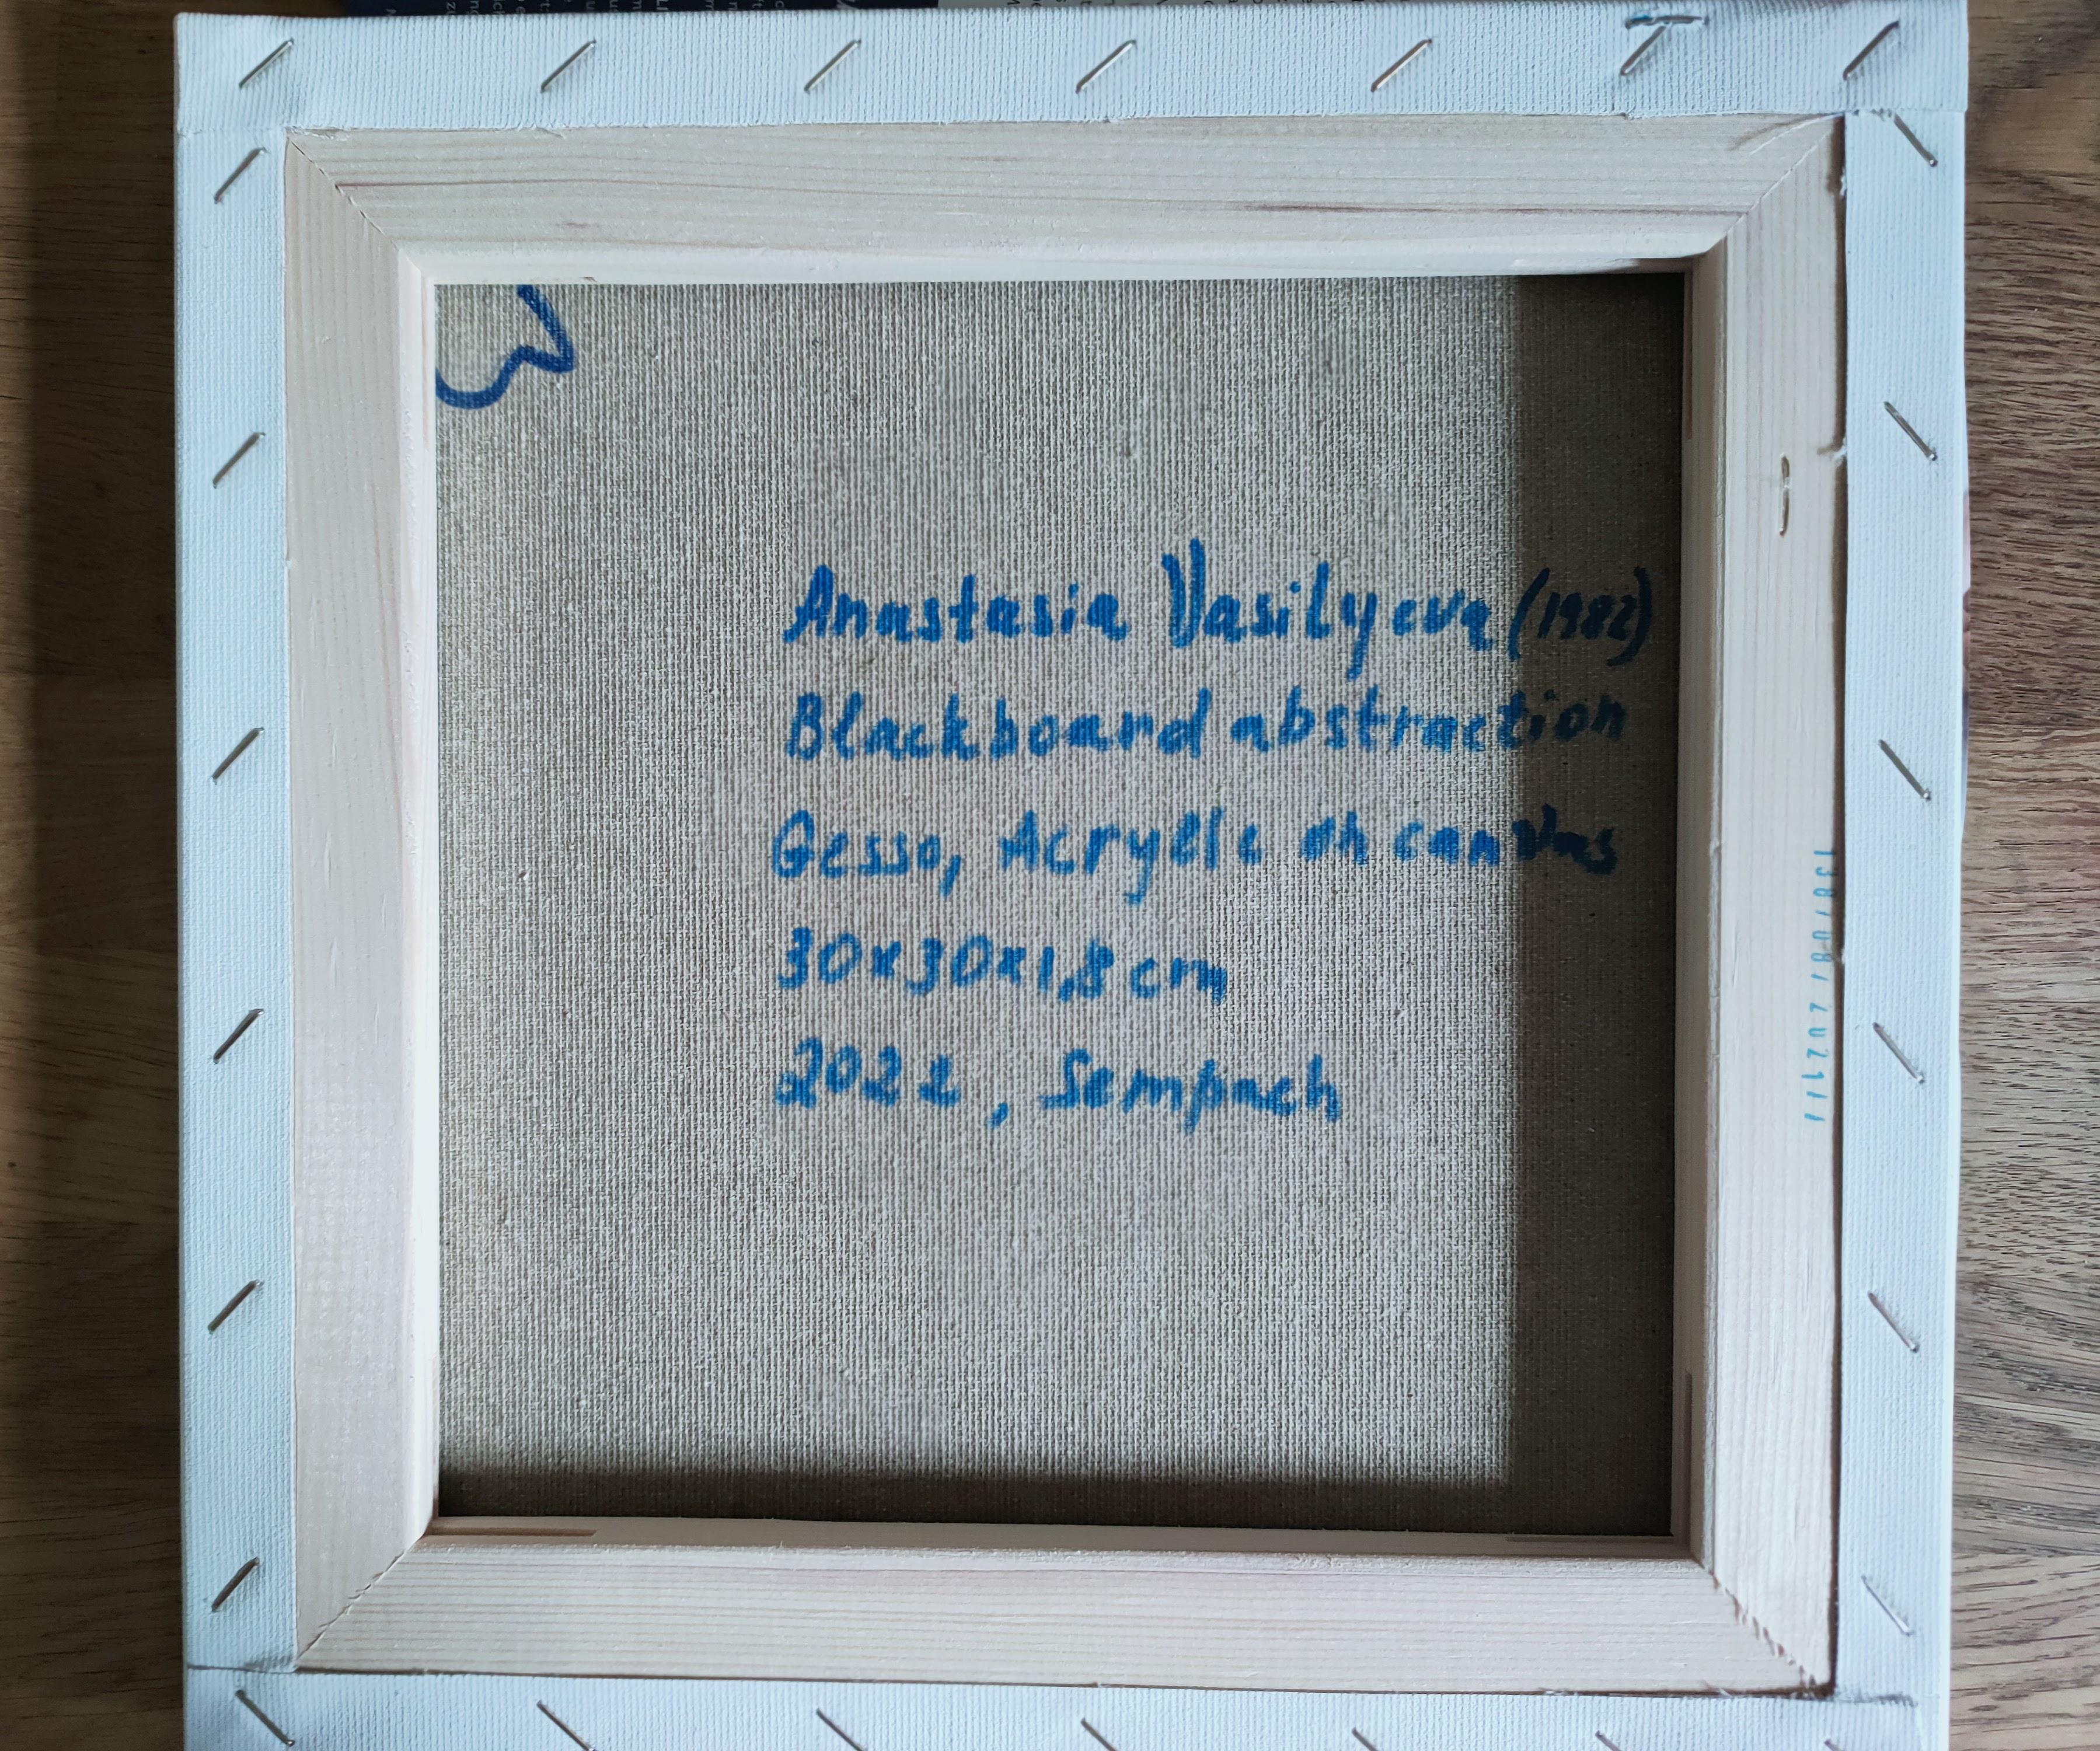 Anastasia Vasilyeva (1982)
Blackboard abstraction
Gesso, Acrylic on canvas
30x30x1,8 cm
2022, Sempach